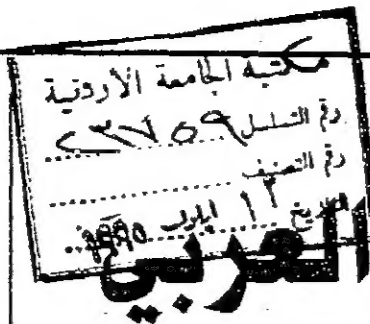 مكتبة الجامعة الأردنية
رقم التسلسل ٢٣٧٥٩
رقم التصنيف
التاريخ ١٢ ايلول ١٩٩٥
العربي